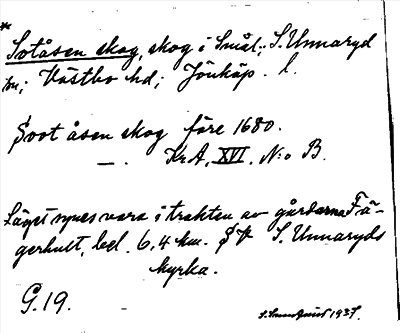 *
Sotåsen skog, skog i Smål.; S. Unnaryd
sn; Västbo hd; Jönköp. l.
Soot åsen skog före 1680.
— . KrA, XVI, N:o B.
Läget synes vara i trakten av gårdarna Fä-
gerhult, bel. 6,4 km. SV S. Unnaryds
kyrka.
G. 19.
1937.